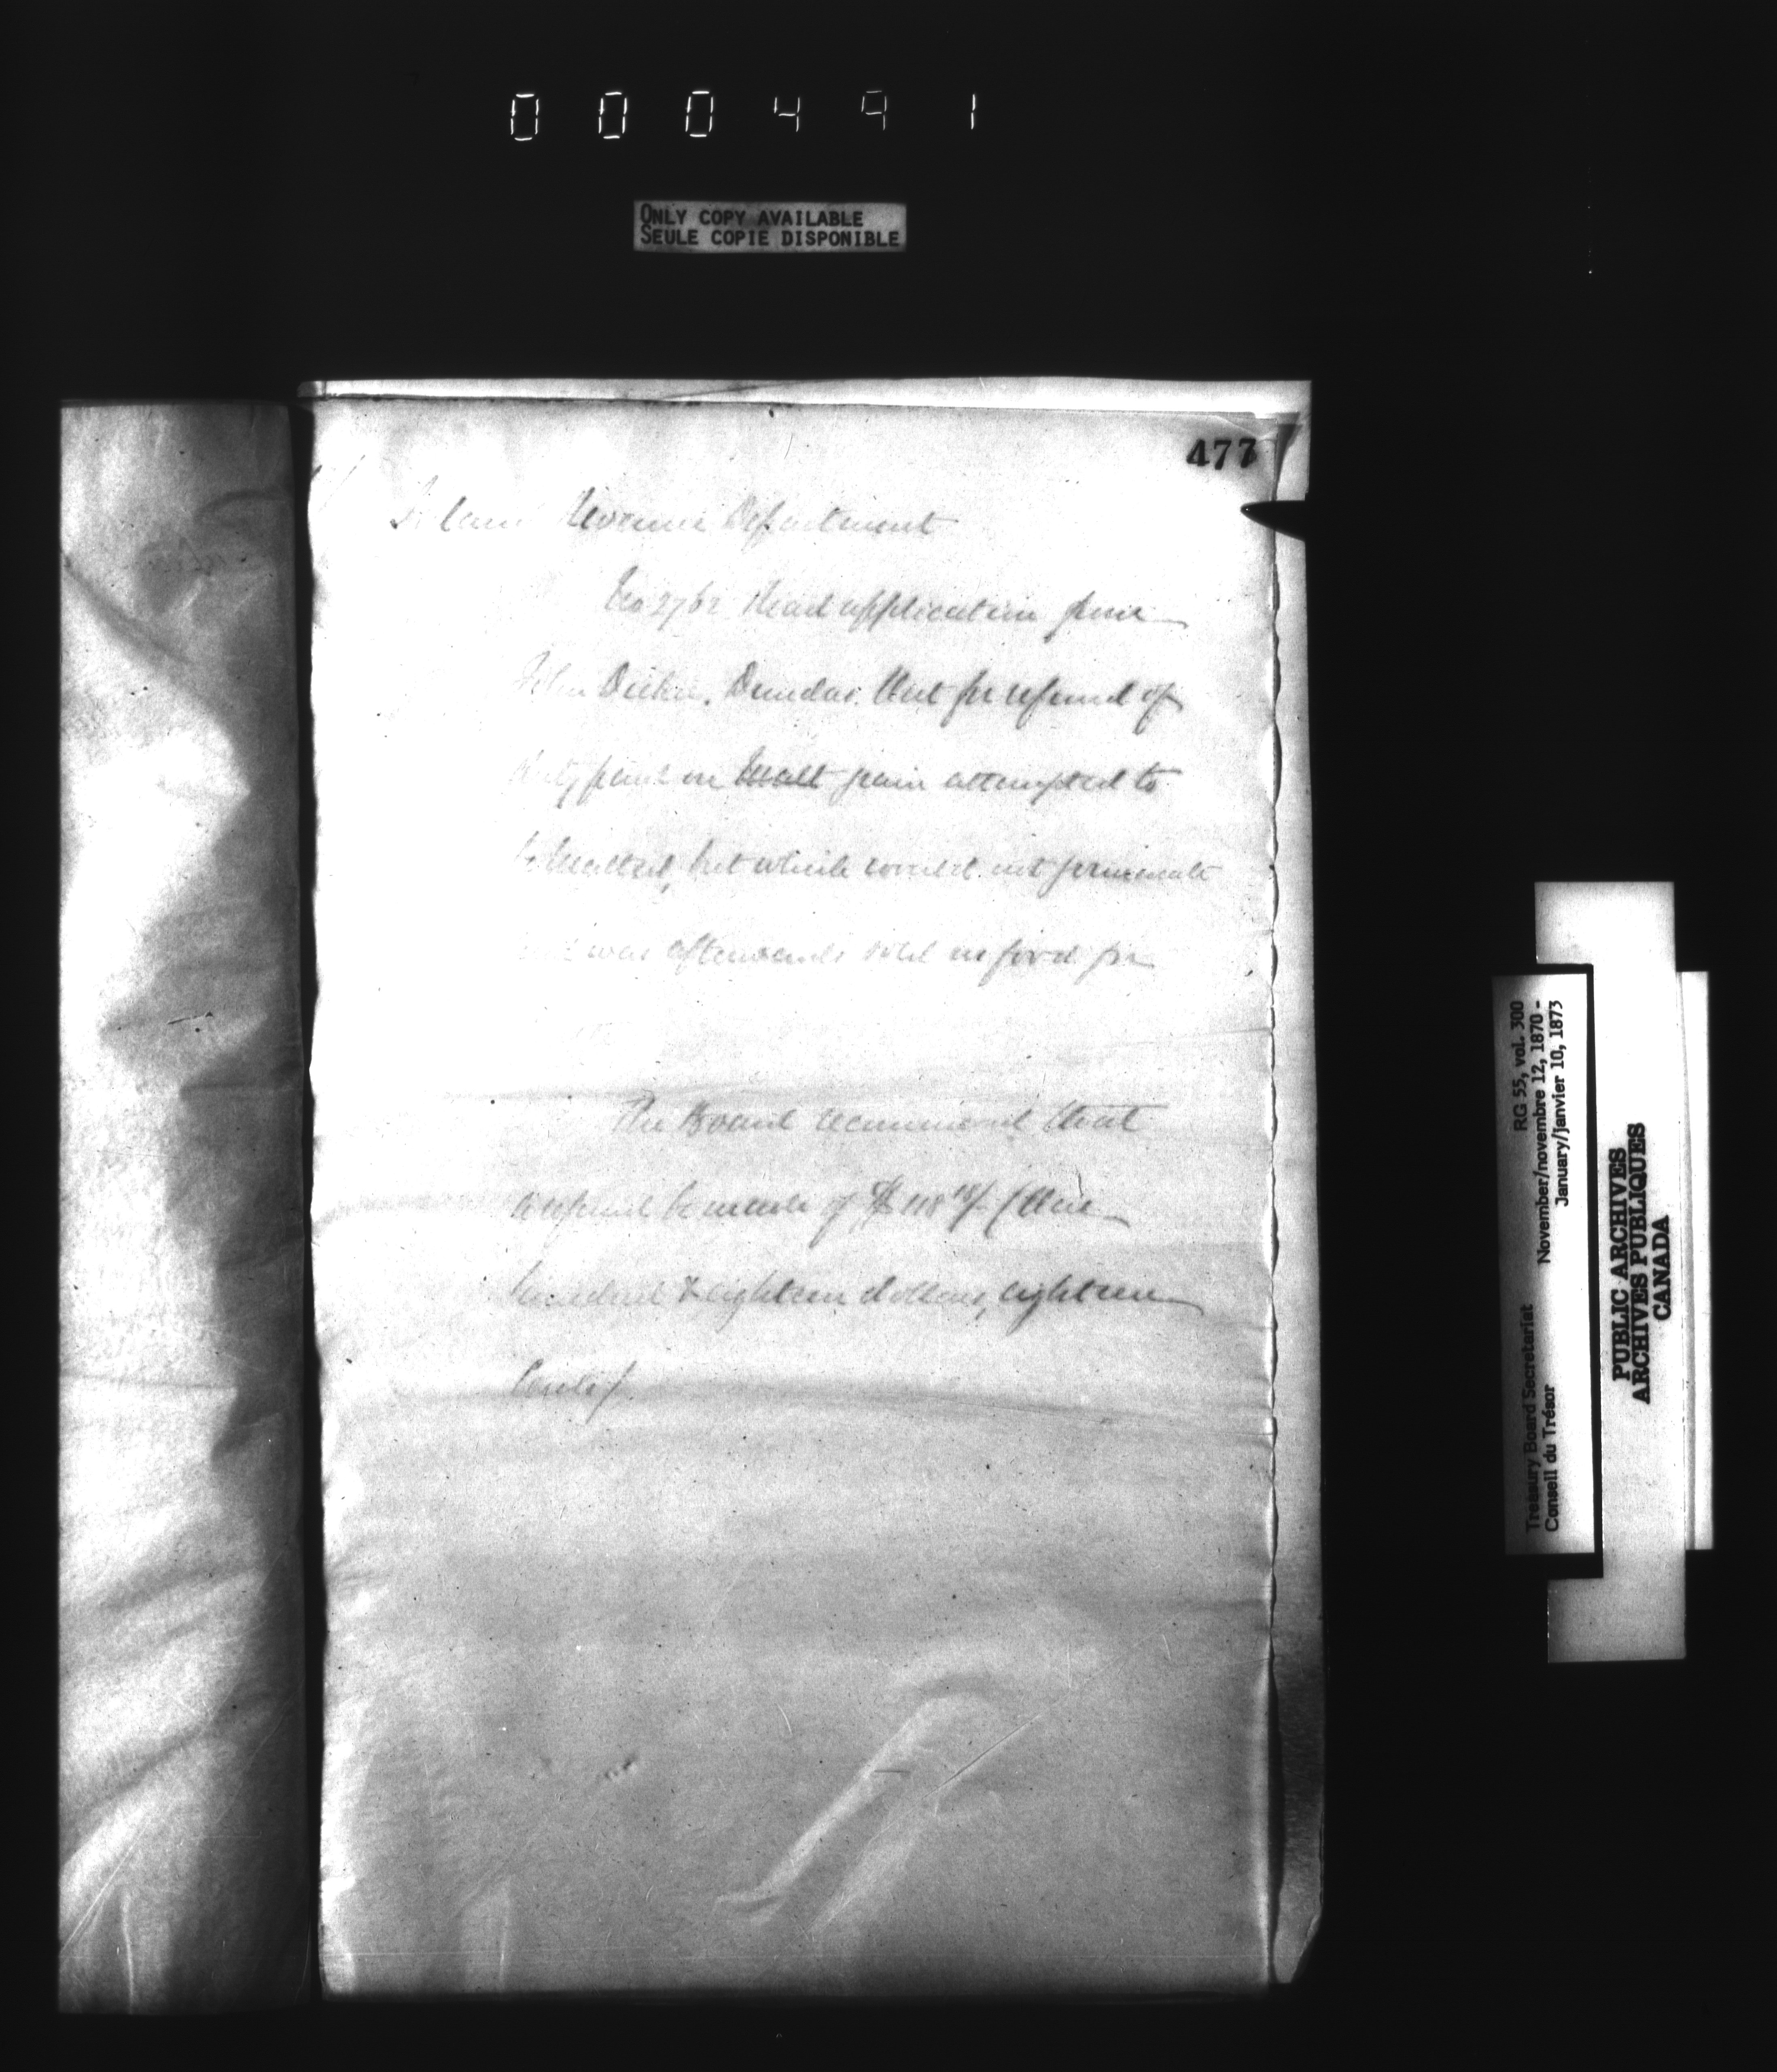 000491
ONLY COPY AVAILABLE
SEULE COPIE DISPONIBLE
477
Inland Revenue Department
No 2762 Read application from
John Dickie, Dundas, Ont for refund of
duty paid on Malt grain attempted to
be Malted, but which would not germinate
and was afterwards sold as food for
The Board recommend that
a refund be made of $118 18/- (One
hundred & eighteen dollars, eighteen
Cents/.
Treasury Board Secretariat RG 55, vol. 300
Conseil du Trésor November/novembre 12, 1870 -
January/janvier 10, 1873
PUBLIC ARCHIVES
ARCHIVES PUBLIQUES
CANADA